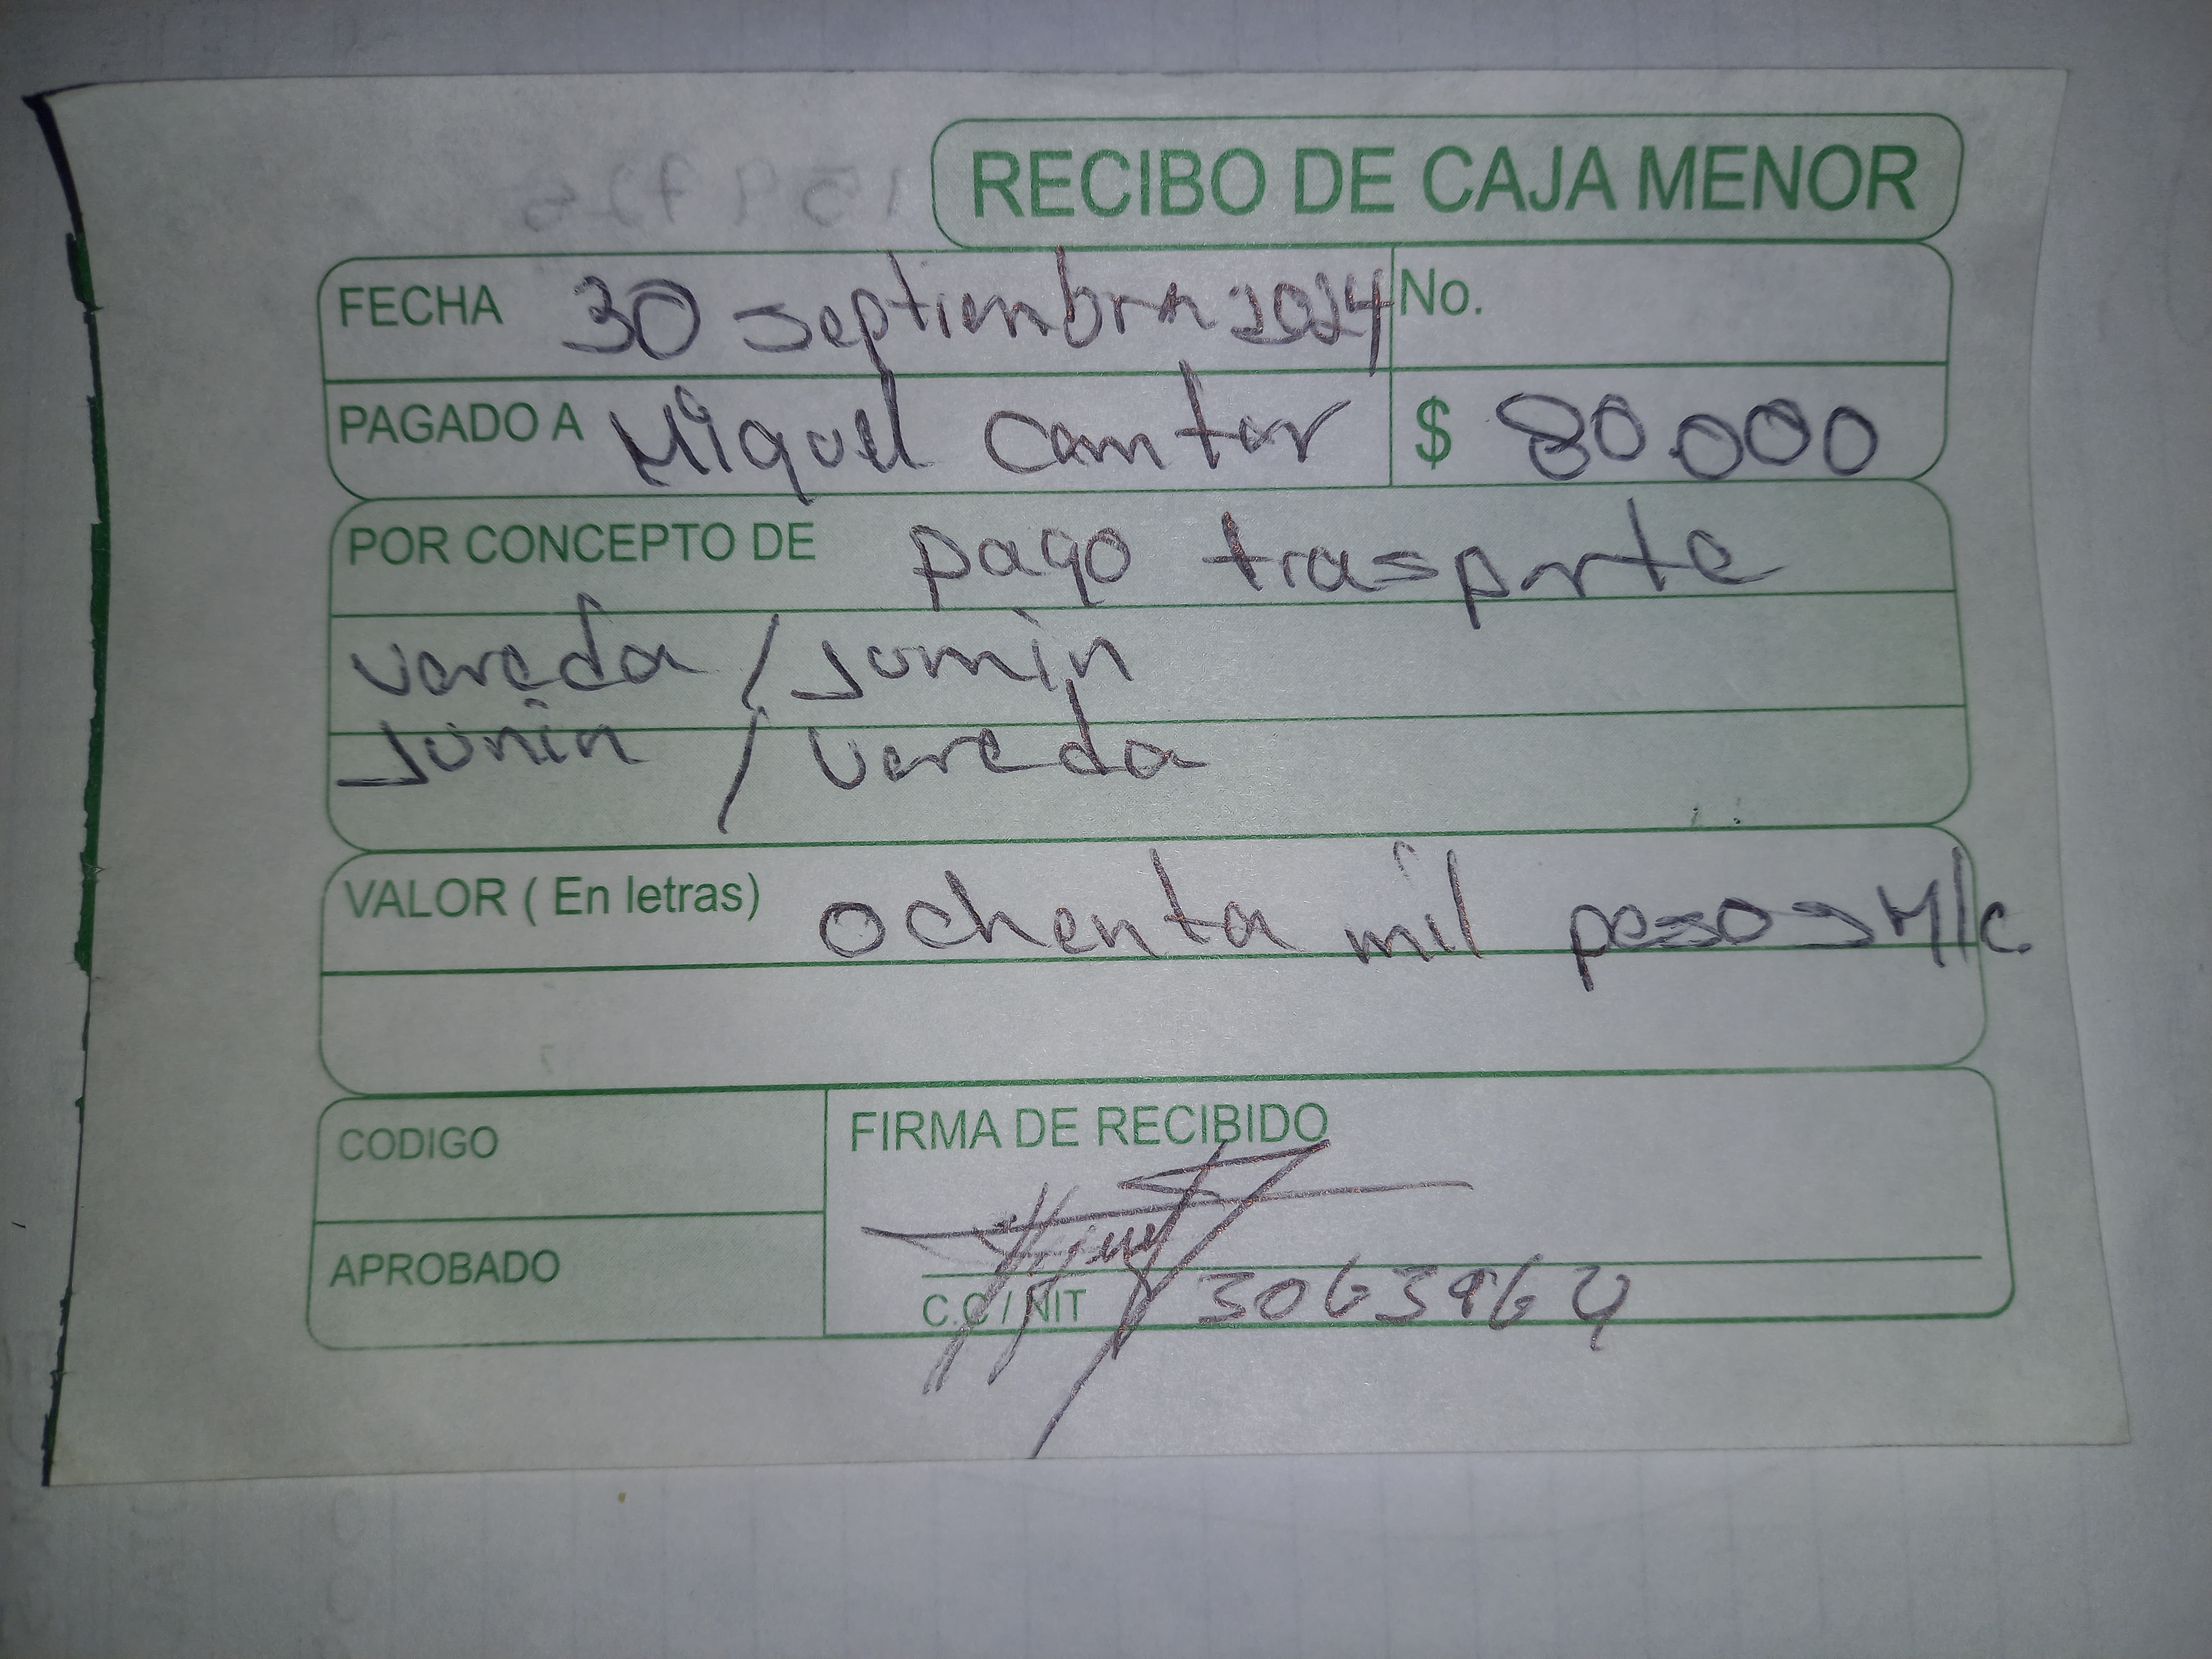 RECIBO DE CAJA MENOR
FECHA 30 septiembre 2024 No.
PAGADO A Miguel Cantor $ 80.000
POR CONCEPTO DE pago trasporte
vereda / Junin
Junin / vereda
VALOR ( En letras) ochenta mil pesos M/c
CODIGO FIRMA DE RECIBIDO
APROBADO
C.C / NIT 3063964